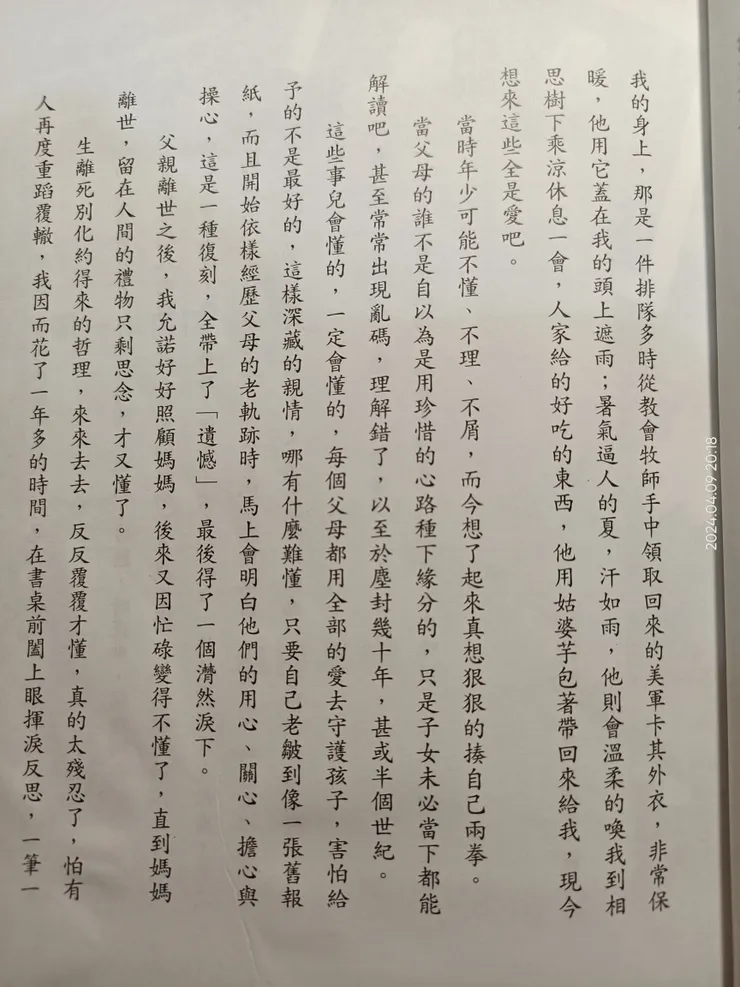 我的身上，那是一件排隊多時從教會牧師手中領取回來的美軍卡其外衣，非常保
暖，他用它蓋在我的頭上遮雨；暑氣逼人的夏，汗如雨，他則會溫柔的喚我到相
思樹下乘涼休息一會，人家給的好吃的東西，他用姑婆芋包著帶回來給我，現今
想來這些全是愛吧。
當時年少可能不懂、不理、不屑，而今想了起來真想狠狠的揍自己兩拳。
當父母的誰不是自以為是用珍惜的心路種下緣分的，只是子女未必當下都能
解讀吧，甚至常常出現亂碼，理解錯了，以至於塵封幾十年，甚或半個世紀。
這些事兒會懂的，一定會懂的，每個父母都用全部的愛去守護孩子，害怕給
予的不是最好的，這樣深藏的親情，哪有什麼難懂，只要自己老皺到像一張舊報
紙，而且開始依樣經歷父母的老軌跡時，馬上會明白他們的用心、關心、擔心與
操心，這是一種復刻，全帶上了「遺憾」，最後得了一個潸然淚下。
父親離世之後，我允諾好好照顧媽媽，後來又因忙碌變得不懂了，直到媽媽
離世，留在人間的禮物只剩思念，才又懂了。
生離死別化約得來的哲理，來來去去，反反覆覆才懂，真的太殘忍了，怕有
人再度重蹈覆轍，我因而花了一年多的時間，在書桌前闔上眼揮淚反思，一筆一
2024.04.09 20:18